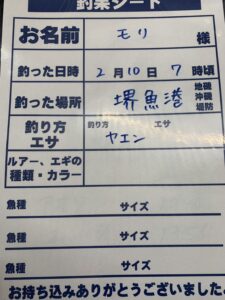 釣果シート
お名前 モリ 様
釣った日時 2月10日 7時頃
釣った場所 堺魚港 地磯 沖磯 堤防
釣り方 エサ 釣り方 ヤエン エサ
ルアー、エギの種類・カラー
魚種 サイズ
魚種 サイズ
魚種 サイズ
お持ち込みありがとうございました。